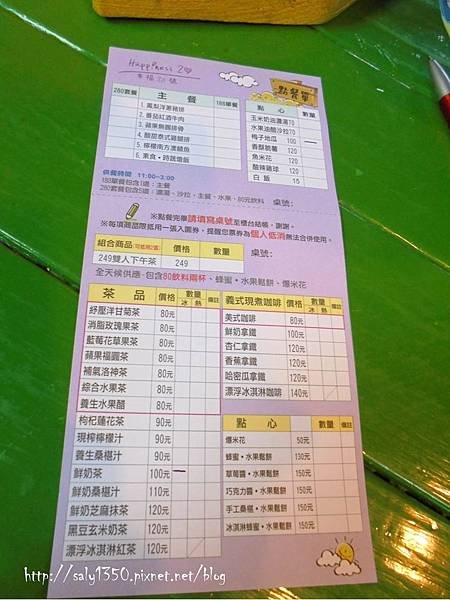 Happiness 2
幸福 2 號
點餐單
280套餐 主餐 188單餐
1.鳳梨洋蔥豬排
2.番茄紅酒牛肉
3.蘋果無國排骨
4.酸甜泰式雞腿排
5.檸檬南方漬鯖魚
6.素食•時蔬燉飯
點心 數量
玉米奶油濃湯70
水果油醋沙拉70
梅子地瓜 100
香酥脆薯 120
魚米花 120
酸辣雞球 120
白飯 15
供餐時間 11:00~3:00
188單餐包含1道:主餐
280套餐包含5道:濃湯、沙拉、主餐、水果、80元飲料 桌號:
※點餐完畢請填寫桌號至櫃台結帳,謝謝。
※每項商品限抵用一張入園券,提醒您票券為個人低消無法合併使用。
組合商品(可抵用2張) 價格 數量 桌號:
249雙人下午茶 249
全天候供應-包含80飲料兩杯、蜂蜜•水果鬆餅、爆米花
茶品 價格 數量 冰 熱 備註
紓壓洋甘菊茶 80元
消脂玫瑰果茶 80元
藍莓花草果茶 80元
蘋果福圓茶 80元
補氣洛神茶 80元
綜合水果茶 80元
養生水果醋 80元
枸杞蓮花茶 90元
現榨檸檬汁 90元
養生桑椹汁 90元
鮮奶茶 100元
鮮奶桑椹汁 110元
鮮奶芝麻抹茶 120元
黑豆玄米奶茶 120元
漂浮冰淇淋紅茶 120元
義式現煮咖啡 價格 數量 冰 熱 備註
美式咖啡 80元
鮮奶拿鐵 100元
杏仁拿鐵 120元
香蕉拿鐵 120元
哈密瓜拿鐵 120元
漂浮冰淇淋咖啡 140元
點心 數量 備註
爆米花 50元
蜂蜜•水果鬆餅 130元
草莓醬•水果鬆餅 150元
巧克力醬•水果鬆餅 150元
手工桑椹•水果鬆餅 150元
冰淇淋蜂蜜•水果鬆餅 150元
http://saly1350.pixnet.net/blog